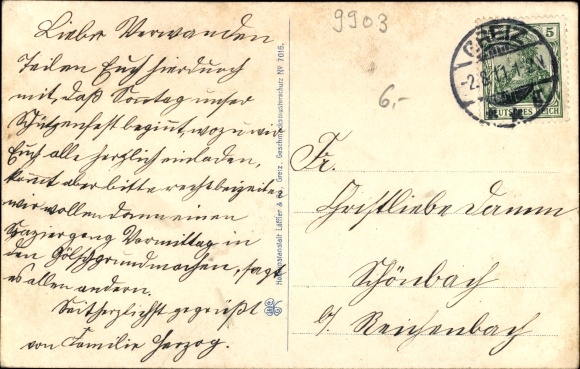 9903
6,-
Lieber Verwanden
Teilen Euch hierdurch
mit, daß Sonntag unser
Schützenfest beginnt, wozu wir
Euch alle herzlich einladen,
kommt aber bitte recht beizeiten
wir wollen dann einen
Spaziergang Vormittag in
den Gölschgrund machen, sagt
es allen andern.
Seit herzlichst gegrüßt
von Familie Herzog.
Kunstanstalt Löffler & Co., Greiz. Geschmacksmusterschutz No 7016.
GREIZ
5
DEUTSCHES REICH
Fr.
Christliebe Damm
Schönbach
b/ Reichenbach